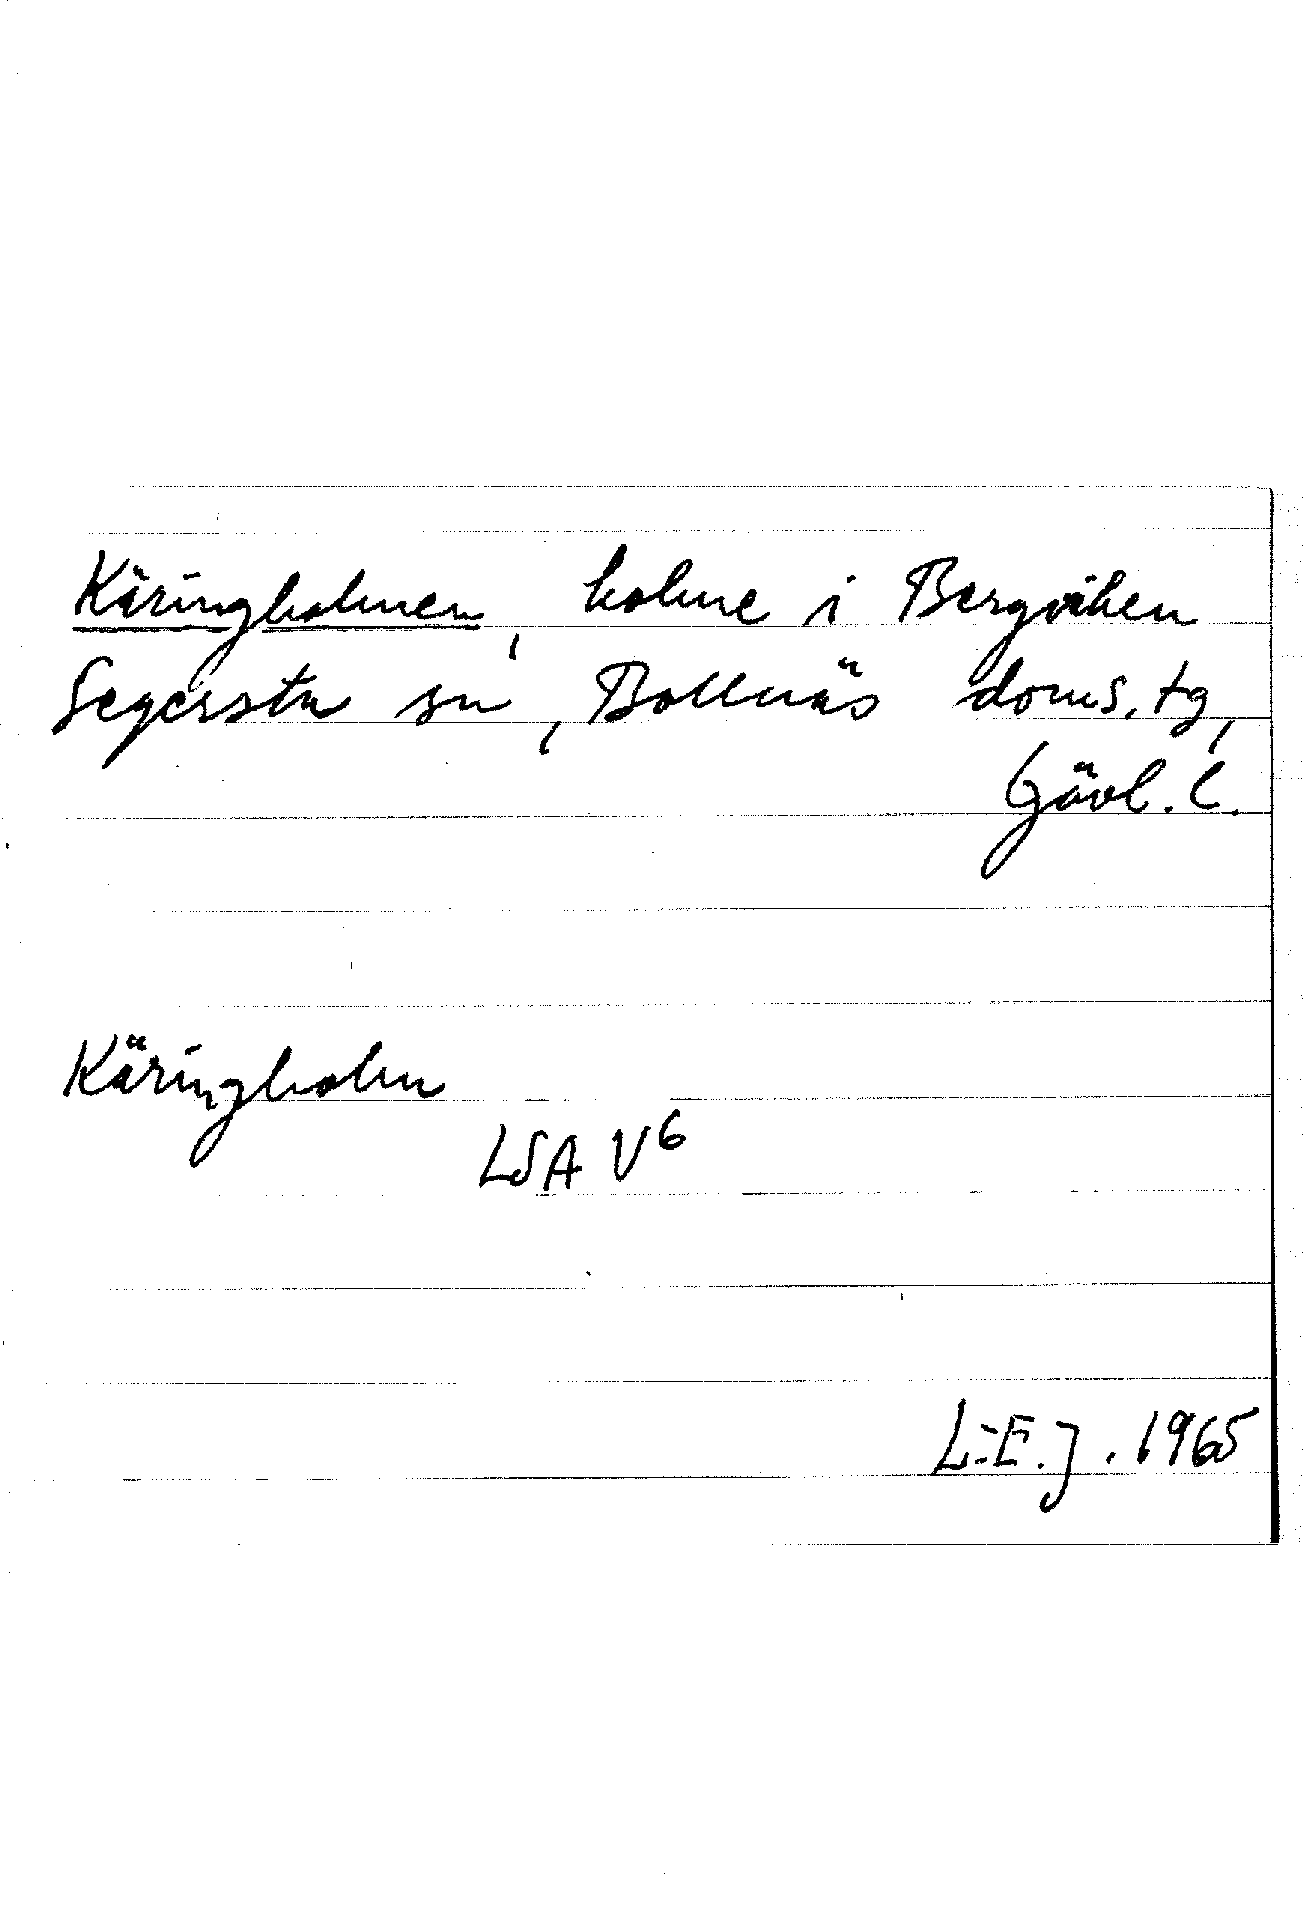 Käringholmen, holme i Bergviken
Segersta sn, Bollnäs doms. tg,
Gävl. l.
Käringholm
LSA V6
L-E.J. 1965